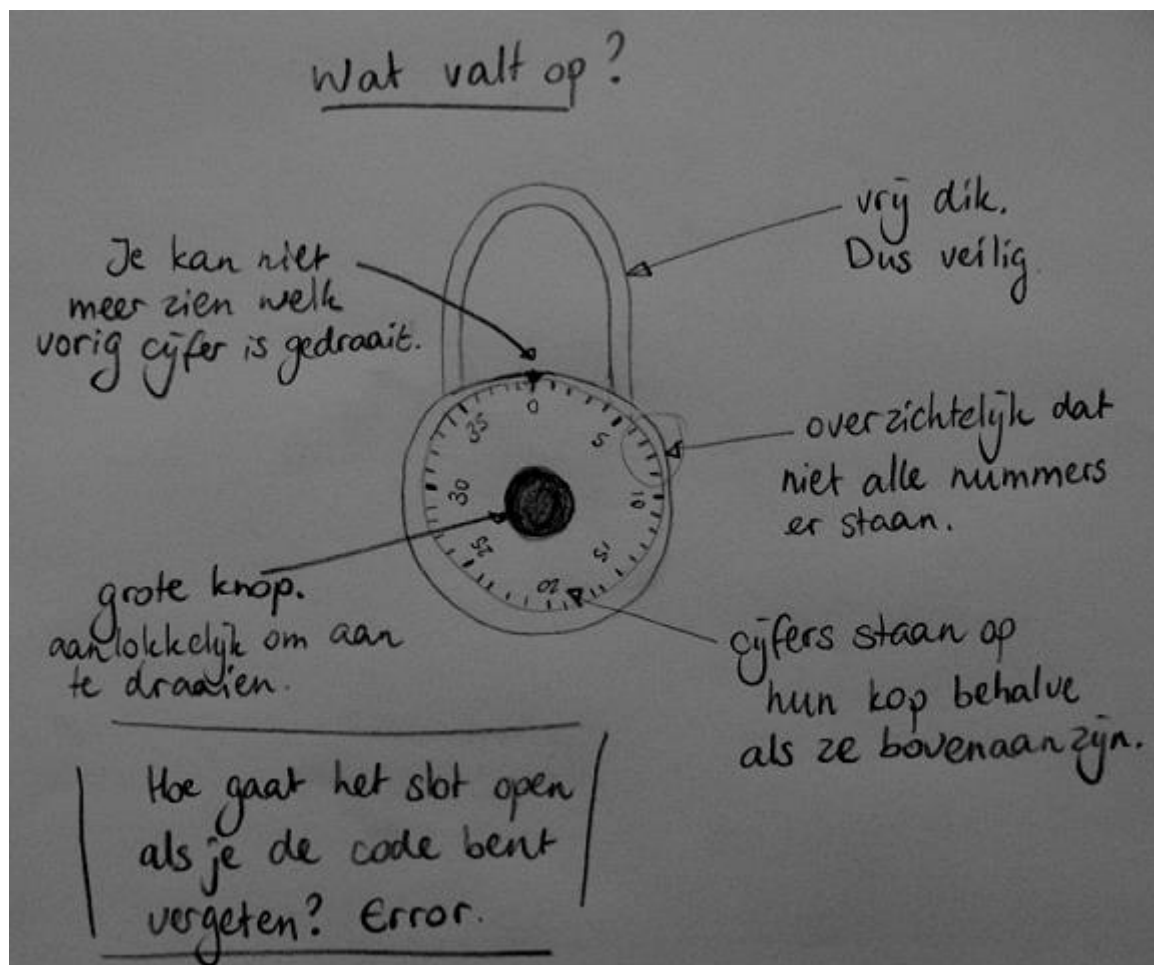 Wat valt op?
Je kan niet
meer zien welk
vorig cijfer is gedraait.
vrij dik.
Dus veilig.
overzichtelijk dat
niet alle nummers
er staan.
0
5
10
15
20
25
30
35
grote knop.
aanlokkelijk om aan
te draaien.
cijfers staan op
hun kop behalve
als ze bovenaan zijn.
Hoe gaat het slot open
als je de code bent
vergeten? Error.